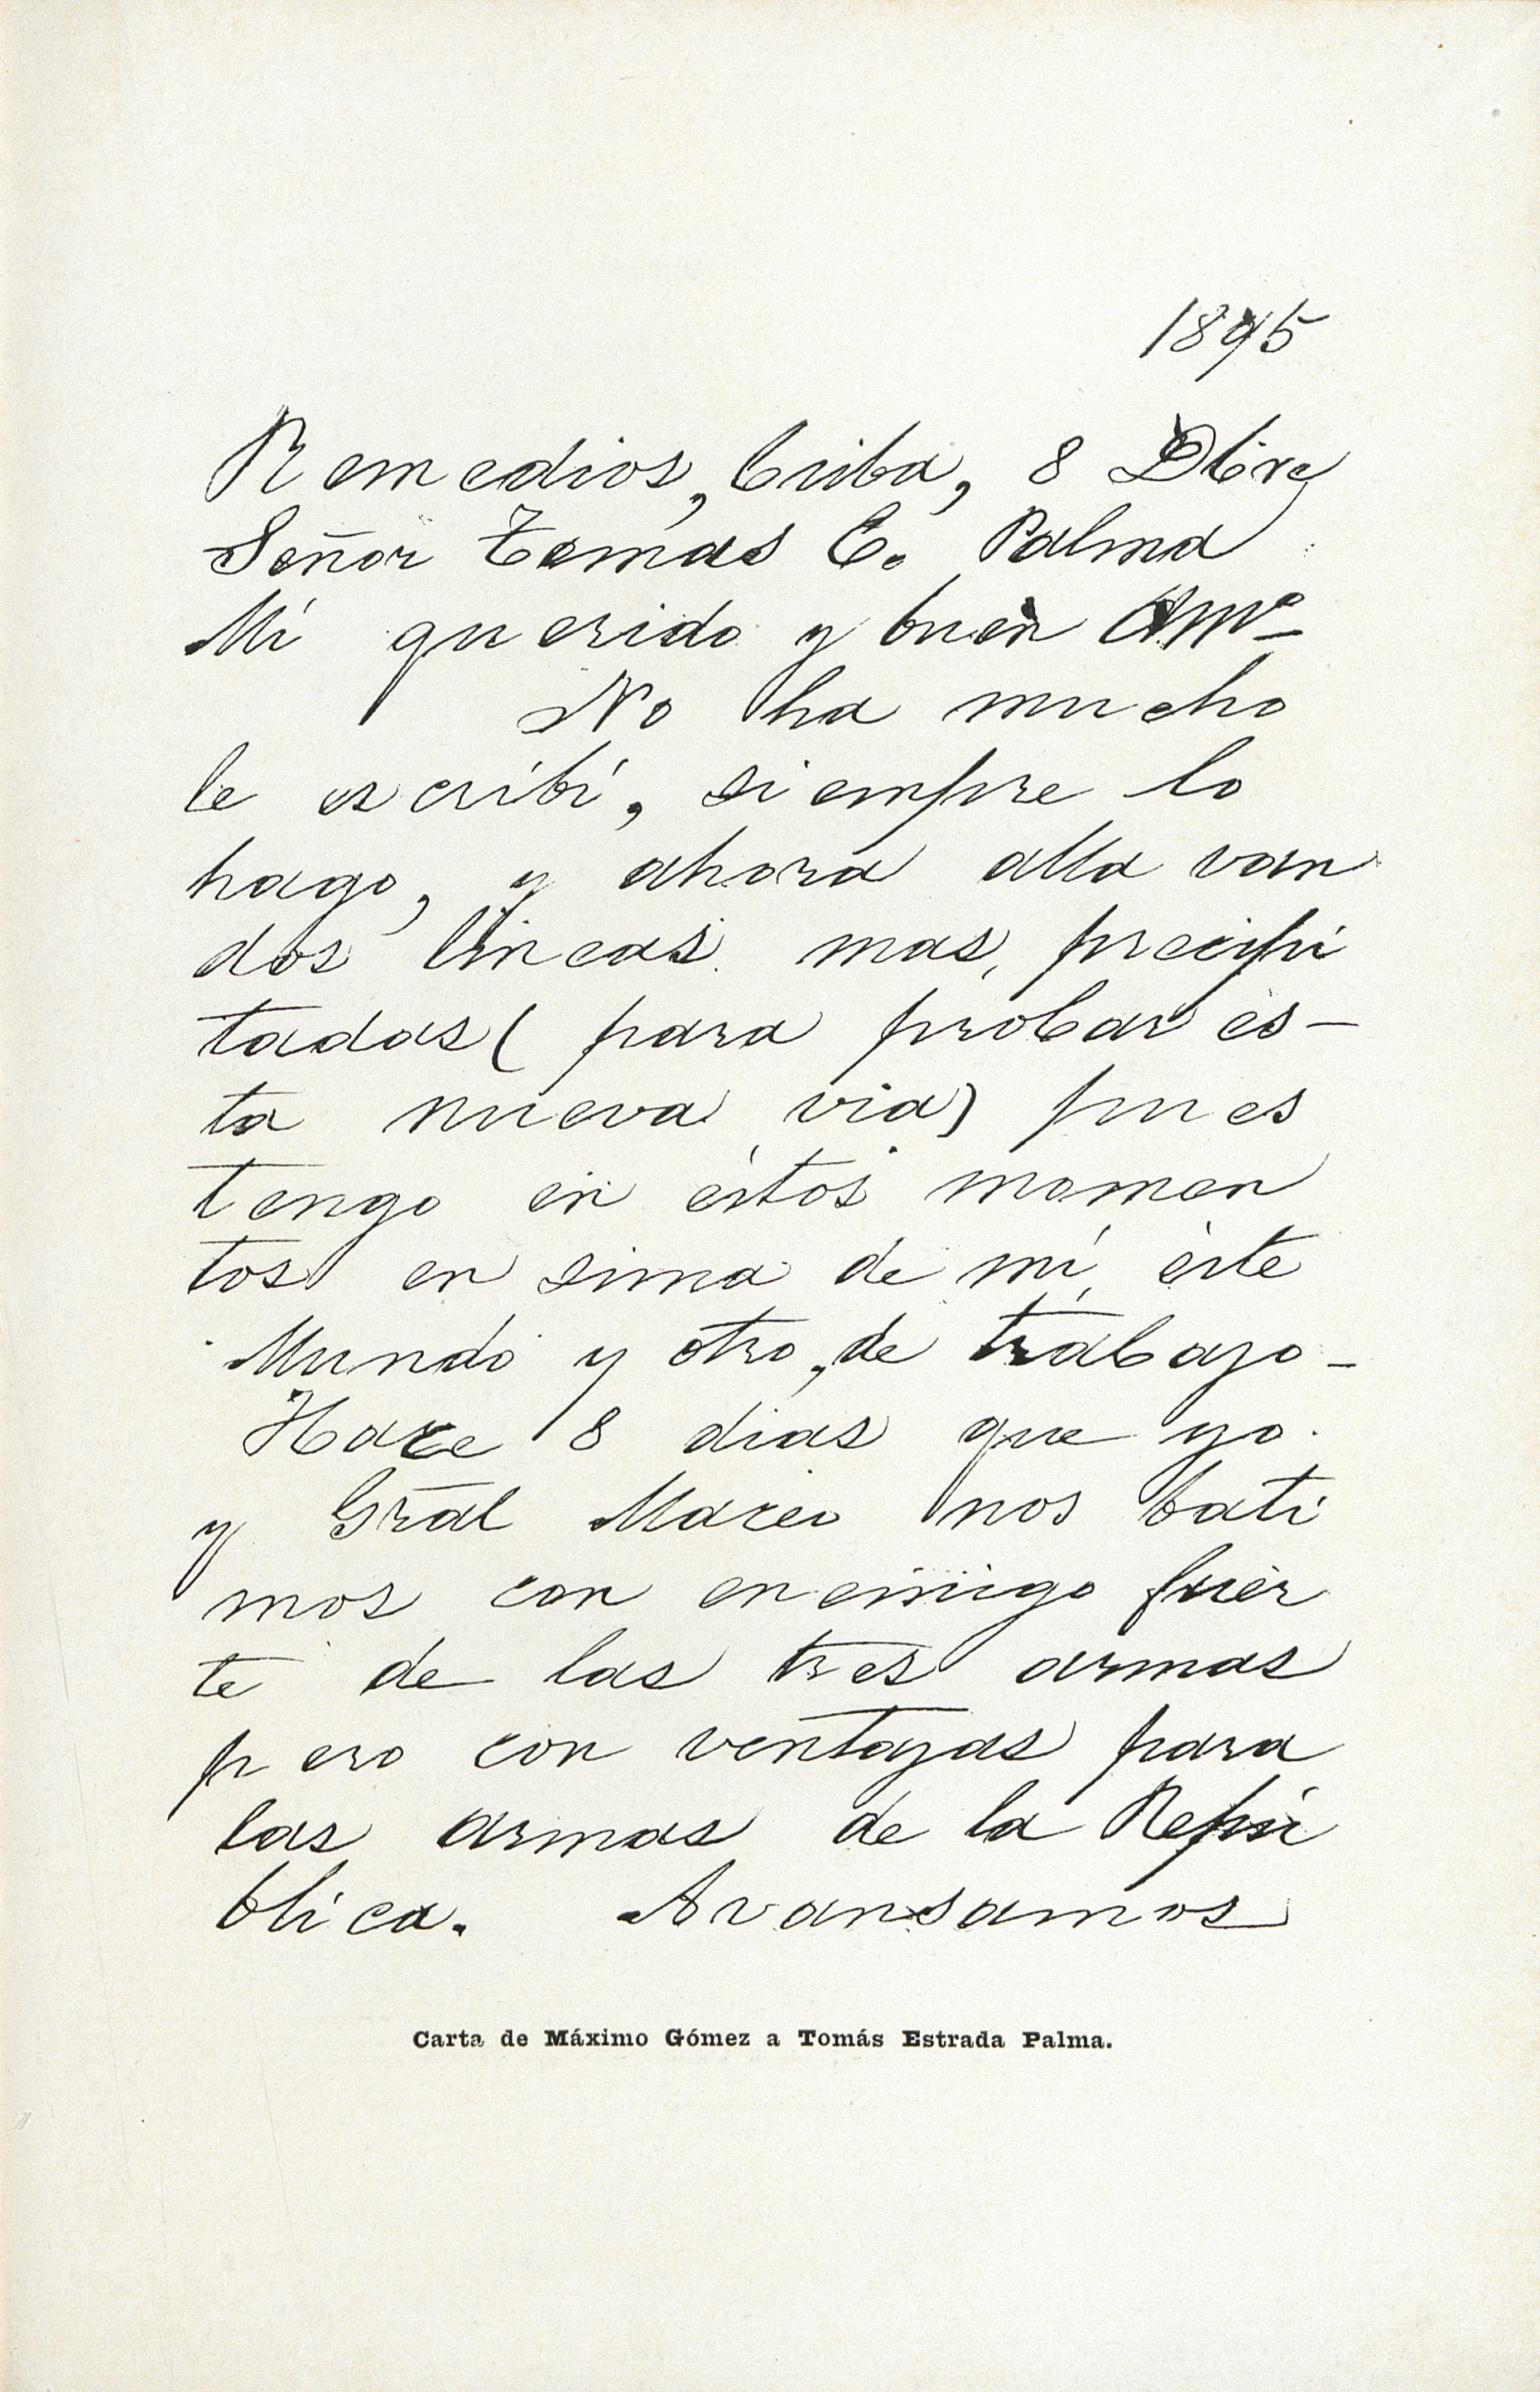 1895
Remedios, Cuba, 8 Dbre
Señor Tomas E. Palma
Mi querido y buen Amº
No ha mucho
le escribí, siempre lo
hago, y ahora alla van
dos lineas mas, precipi
tadas ( para probar es-
ta nueva via) pues
tengo en éstos momen
tos en sima de mí, éste
Mundo y otro, de trabajo-
Hace 8 dias que yo
y Gral Maceo nos bati
mos con enemigo fuer
te de las tres armas
pero con ventajas para
las armas de la Repú
blica. Avansamos
Carta de Máximo Gómez a Tomás Estrada Palma.